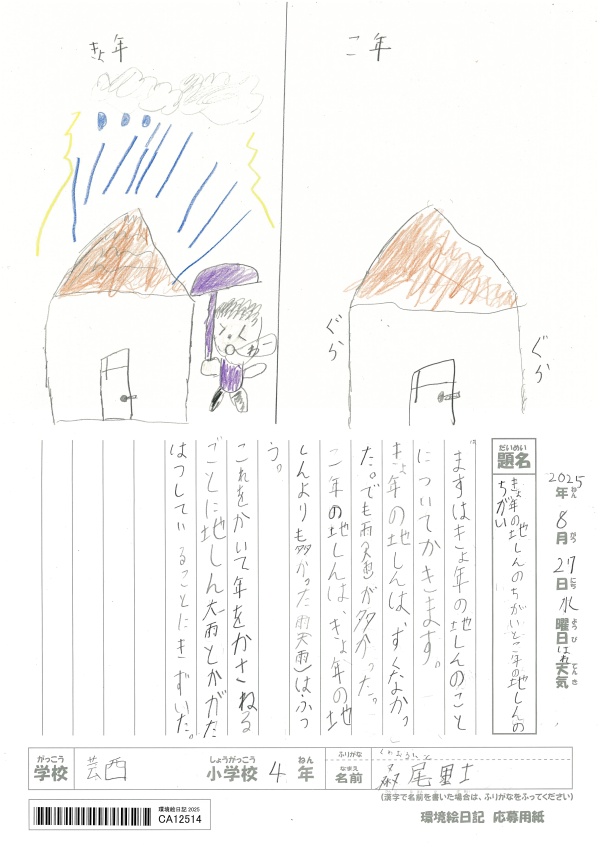 きょ年
こ年
ぐら
ぐら
だいめい
題名
きょ年の地しんのちがいとこ年の地しんの
ちがい
2025年8月27日水曜日はれ天気
ねん
がつ
にち
ようび
てんき
まずはきょ年の地しんのこと
についてかきます。
きょ年の地しんは、すくなかっ
た。でも雨が多かった。
こ年の地しんは、きょ年の地
しんよりも多かった雨はふつ
う。
これをかいて年をかさねる
ごとに地しん大雨とかがた
はつしていることにきずいた。
がっこう
学校
芸西
しょうがっこう
小学校
4
ねん
年
ふりがな
なまえ
名前
尾
(漢字で名前を書いた場合は、ふりがなをふってください)
環境絵日記 2025
CA12514
環境絵日記 応募用紙